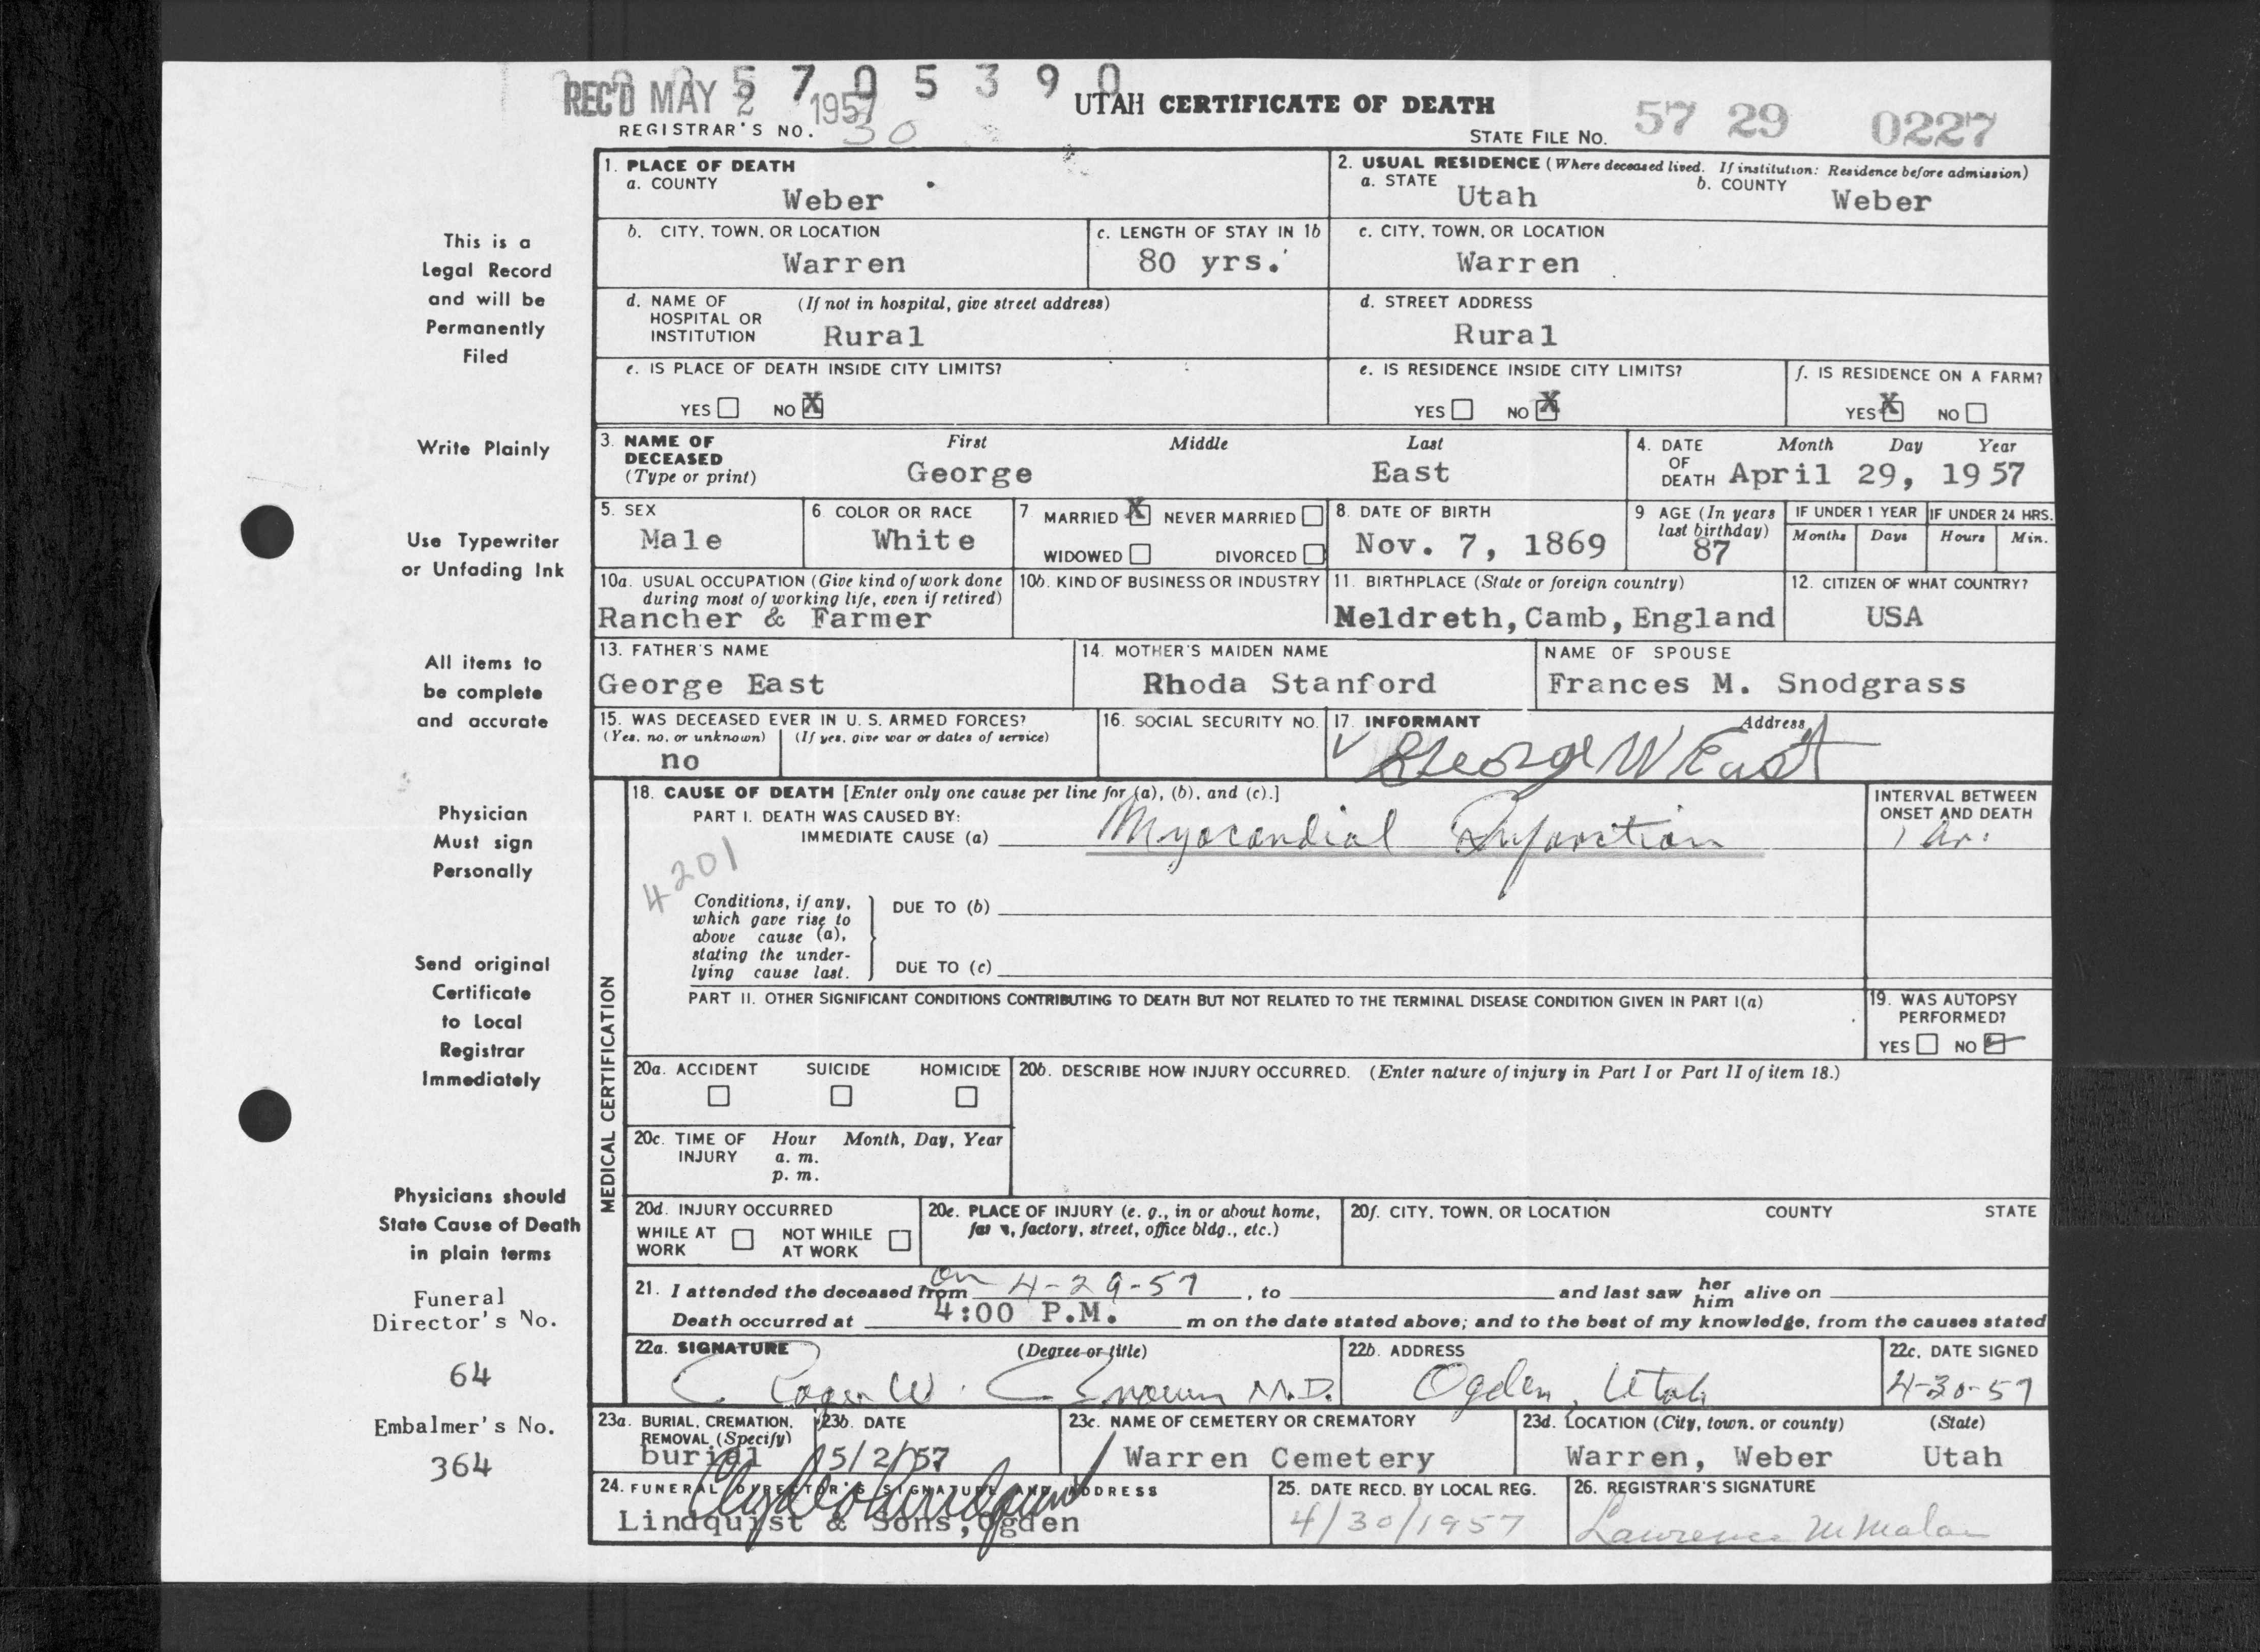 REC'D MAY 2 1957
5 7 0 5 3 9 0
UTAH CERTIFICATE OF DEATH
REGISTRAR'S NO. 30
STATE FILE NO. 57 29 0227
This is a
Legal Record
and will be
Permanently
Filed
Write Plainly
Use Typewriter
or Unfading Ink
All items to
be complete
and accurate
Physician
Must sign
Personally
Send original
Certificate
to Local
Registrar
Immediately
Physicians should
State Cause of Death
in plain terms
Funeral
Director's No.
64
Embalmer's No.
364
1. PLACE OF DEATH
a. COUNTY
Weber
2. USUAL RESIDENCE (Where deceased lived. If institution: Residence before admission)
a. STATE Utah b. COUNTY Weber
b. CITY, TOWN, OR LOCATION
Warren
c. LENGTH OF STAY IN 1b
80 yrs.
c. CITY, TOWN, OR LOCATION
Warren
d. NAME OF (If not in hospital, give street address)
HOSPITAL OR
INSTITUTION Rural
d. STREET ADDRESS
Rural
e. IS PLACE OF DEATH INSIDE CITY LIMITS?
YES NO X
e. IS RESIDENCE INSIDE CITY LIMITS?
YES NO X
f. IS RESIDENCE ON A FARM?
YES X NO
3. NAME OF First Middle Last
DECEASED
(Type or print) George East
4. DATE Month Day Year
OF
DEATH April 29, 1957
5. SEX
Male
6 COLOR OR RACE
White
7 MARRIED X NEVER MARRIED
WIDOWED DIVORCED
8. DATE OF BIRTH
Nov. 7, 1869
9 AGE (In years
last birthday)
87
IF UNDER 1 YEAR
Months Days
IF UNDER 24 HRS.
Hours Min.
10a. USUAL OCCUPATION (Give kind of work done
during most of working life, even if retired)
Rancher & Farmer
10b. KIND OF BUSINESS OR INDUSTRY
11. BIRTHPLACE (State or foreign country)
Meldreth, Camb, England
12. CITIZEN OF WHAT COUNTRY?
USA
13. FATHER'S NAME
George East
14. MOTHER'S MAIDEN NAME
Rhoda Stanford
NAME OF SPOUSE
Frances M. Snodgrass
15. WAS DECEASED EVER IN U. S. ARMED FORCES?
(Yes, no, or unknown) (If yes, give war or dates of service)
no
16. SOCIAL SECURITY NO.
17. INFORMANT Address
George W East
MEDICAL CERTIFICATION
18. CAUSE OF DEATH [Enter only one cause per line for (a), (b), and (c).]
PART I. DEATH WAS CAUSED BY:
IMMEDIATE CAUSE (a) Myocardial Infarction
INTERVAL BETWEEN
ONSET AND DEATH
1 hr.
4201
Conditions, if any,
which gave rise to
above cause (a),
stating the under-
lying cause last.
DUE TO (b)
DUE TO (c)
PART II. OTHER SIGNIFICANT CONDITIONS CONTRIBUTING TO DEATH BUT NOT RELATED TO THE TERMINAL DISEASE CONDITION GIVEN IN PART I(a)
19. WAS AUTOPSY
PERFORMED?
YES NO
20a. ACCIDENT SUICIDE HOMICIDE
20b. DESCRIBE HOW INJURY OCCURRED. (Enter nature of injury in Part I or Part II of item 18.)
20c. TIME OF Hour Month, Day, Year
INJURY a. m.
p. m.
20d. INJURY OCCURRED
WHILE AT NOT WHILE
WORK AT WORK
20e. PLACE OF INJURY (e. g., in or about home,
farm, factory, street, office bldg., etc.)
20f. CITY, TOWN, OR LOCATION COUNTY STATE
on
21. I attended the deceased from 4-29-57, to and last saw her him alive on
Death occurred at 4:00 P.M. m on the date stated above; and to the best of my knowledge, from the causes stated
22a. SIGNATURE (Degree or title)
Roger W. Brown M.D.
22b. ADDRESS
Ogden, Utah
22c. DATE SIGNED
4-30-57
23a. BURIAL, CREMATION,
REMOVAL (Specify)
burial
23b. DATE
5/2/57
23c. NAME OF CEMETERY OR CREMATORY
Warren Cemetery
23d. LOCATION (City, town, or county) (State)
Warren, Weber Utah
24. FUNERAL DIRECTOR'S SIGNATURE AND ADDRESS
Lindquist & Sons, Ogden
25. DATE RECD. BY LOCAL REG.
4/30/1957
26. REGISTRAR'S SIGNATURE
Lawrence M Malan